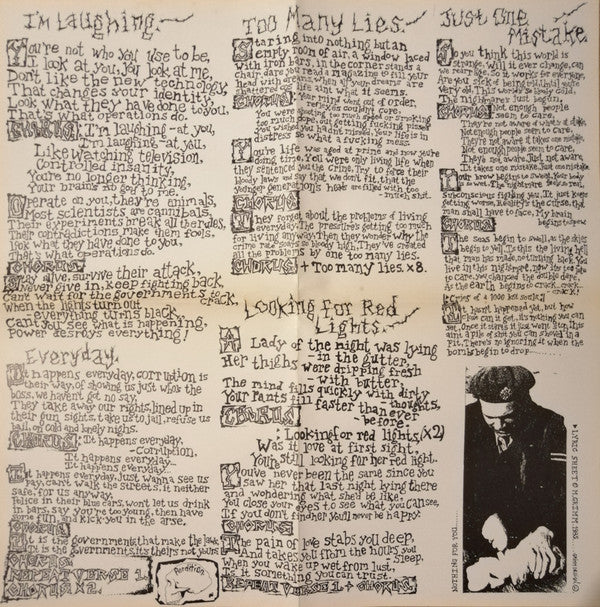 I'm Laughing.
You're not who you use to be,
I look at you, you look at me,
Don't like the new technology,
That changes your identity,
Look what they have done to you.
That's what operations do.
CHORUS: I'm laughing - at you,
I'm laughing - at you,
Like watching television,
Controlled insanity,
You're no longer thinking,
Your brains
Operate on you, they're animals,
Most scientists are cannibals,
Their experiments break all the rules,
Their contradictions make them fools.
Look what they have done to you,
That's what operations do.
CHORUS:
survive their attack,
Never give in, keep fighting back,
Can't wait for the governments sack,
When the lights turn out
- everything turns black,
Can't you see what is happening,
Power destroys everything!
Everyday.
It happens everyday, corruption is
their way, of showing us just whos the
boss, we haven't got no say,
They take away our rights, lined up in
their gun sights, take us to jail, refuse us
bail, of cold and lonely nights.
CHORUS: It happens everyday.
-Corruption.
It happens everyday..
It happens everyday..
It happens everyday, Just wanna see us
pay, can't walk the streets, it neither
safe, for us anyway,
Police in their blue cars, won't let us drink
in bars, say you're too young, then have
their fun, and kick you in the arse.
CHORUS
It is the governments that make the law,
It is the governments, its theirs not yours
CHORUS.
REPEAT VERSE 1.
CHORUS X2.
Perdition
Too Many Lies.
Staring into nothing but an
empty room of air, a window laced
with iron bars, in the corner stands a
chair, dare you read a magazine to fill your
head with dreams, after all your dreams are
shattered cos life aint what it seems.
CHORUS: Your mind went out of order,
reflexes couldn't care.
You were spotting too much speed or smoking
too much dope, and getting fucking pissed
You wished you hadnt missed, Your life is in
distress & what a fucking mess.
Youre life was aged at prime unsure you're
doing time, You were only living life when
they sentenced you the crime, Try to force their
bloody laws and say that we don't fit, the
younger generation's heads are filled with too
-much shit.
CHORUS
They forget about the problems of living
everyday, The pressure's getting too much
for living anyway, Then they wonder why the
crime rate soars so bloody high, They've created
all the problems by one too many lies.
CHORUS + Too many lies. x 8.
Looking for Red
Lights.
A Lady of the night was lying
-in the gutter,
Her thighs were dripping fresh
-with butter,
The mind fills quickly with dirty
-thoughts,
Your pants fill faster than ever
-before.
CHORUS
: Looking for red lights, (X2)
Was it love at first sight.
You're still looking for her red light.
You've never been the same since you
saw her that 1st night lying there
and wondering what she'd be like,
You close your eyes to see what you can see,
If you don't find her you'll never be happy.
CHORUS
The pain of love stabs you deep,
And takes you from the hours you
sleep,
When you wake up wet from lust,
Is it something you can trust.
REPEAT VERSE 1 + CHORUS.
Just One
Mistake.
Do you think this world is
strange, Will it ever change, can
we rearrange, So it works for everyone,
very old, This world's gone
The nightmare just begun,
CHORUS: Not enough people
seem to care,
They're not aware of what's at stake,
Not enough people seem to care,
They're not aware of the mistake,
Not enough people seem to care,
They're not aware, Just not aware,
It takes one mistake, Just one mistake.
Your brow begins to sweat, Your body
is so wet, The nightmare seems so real,
Subconscious fighting you, It just keeps
getting worse, Its really the curse, that
man shall have to face, My brain
begins to spew
CHORUS.
The seas begin to swell, as the skies
begin to yell, Is this the living hell
that man has made, no turning back, You
live in this nightmare, now its too late
to care, you changed the double dare,
As the earth begins to crack... crack...
It hasn't happened yet, but how
close can it get, its nothing you can
bet, Once it starts it just went,
Fit, There's no ignoring it when the
bombs begin to drop........
NOTHING FOR YOU
LYRIC SHEET
1985